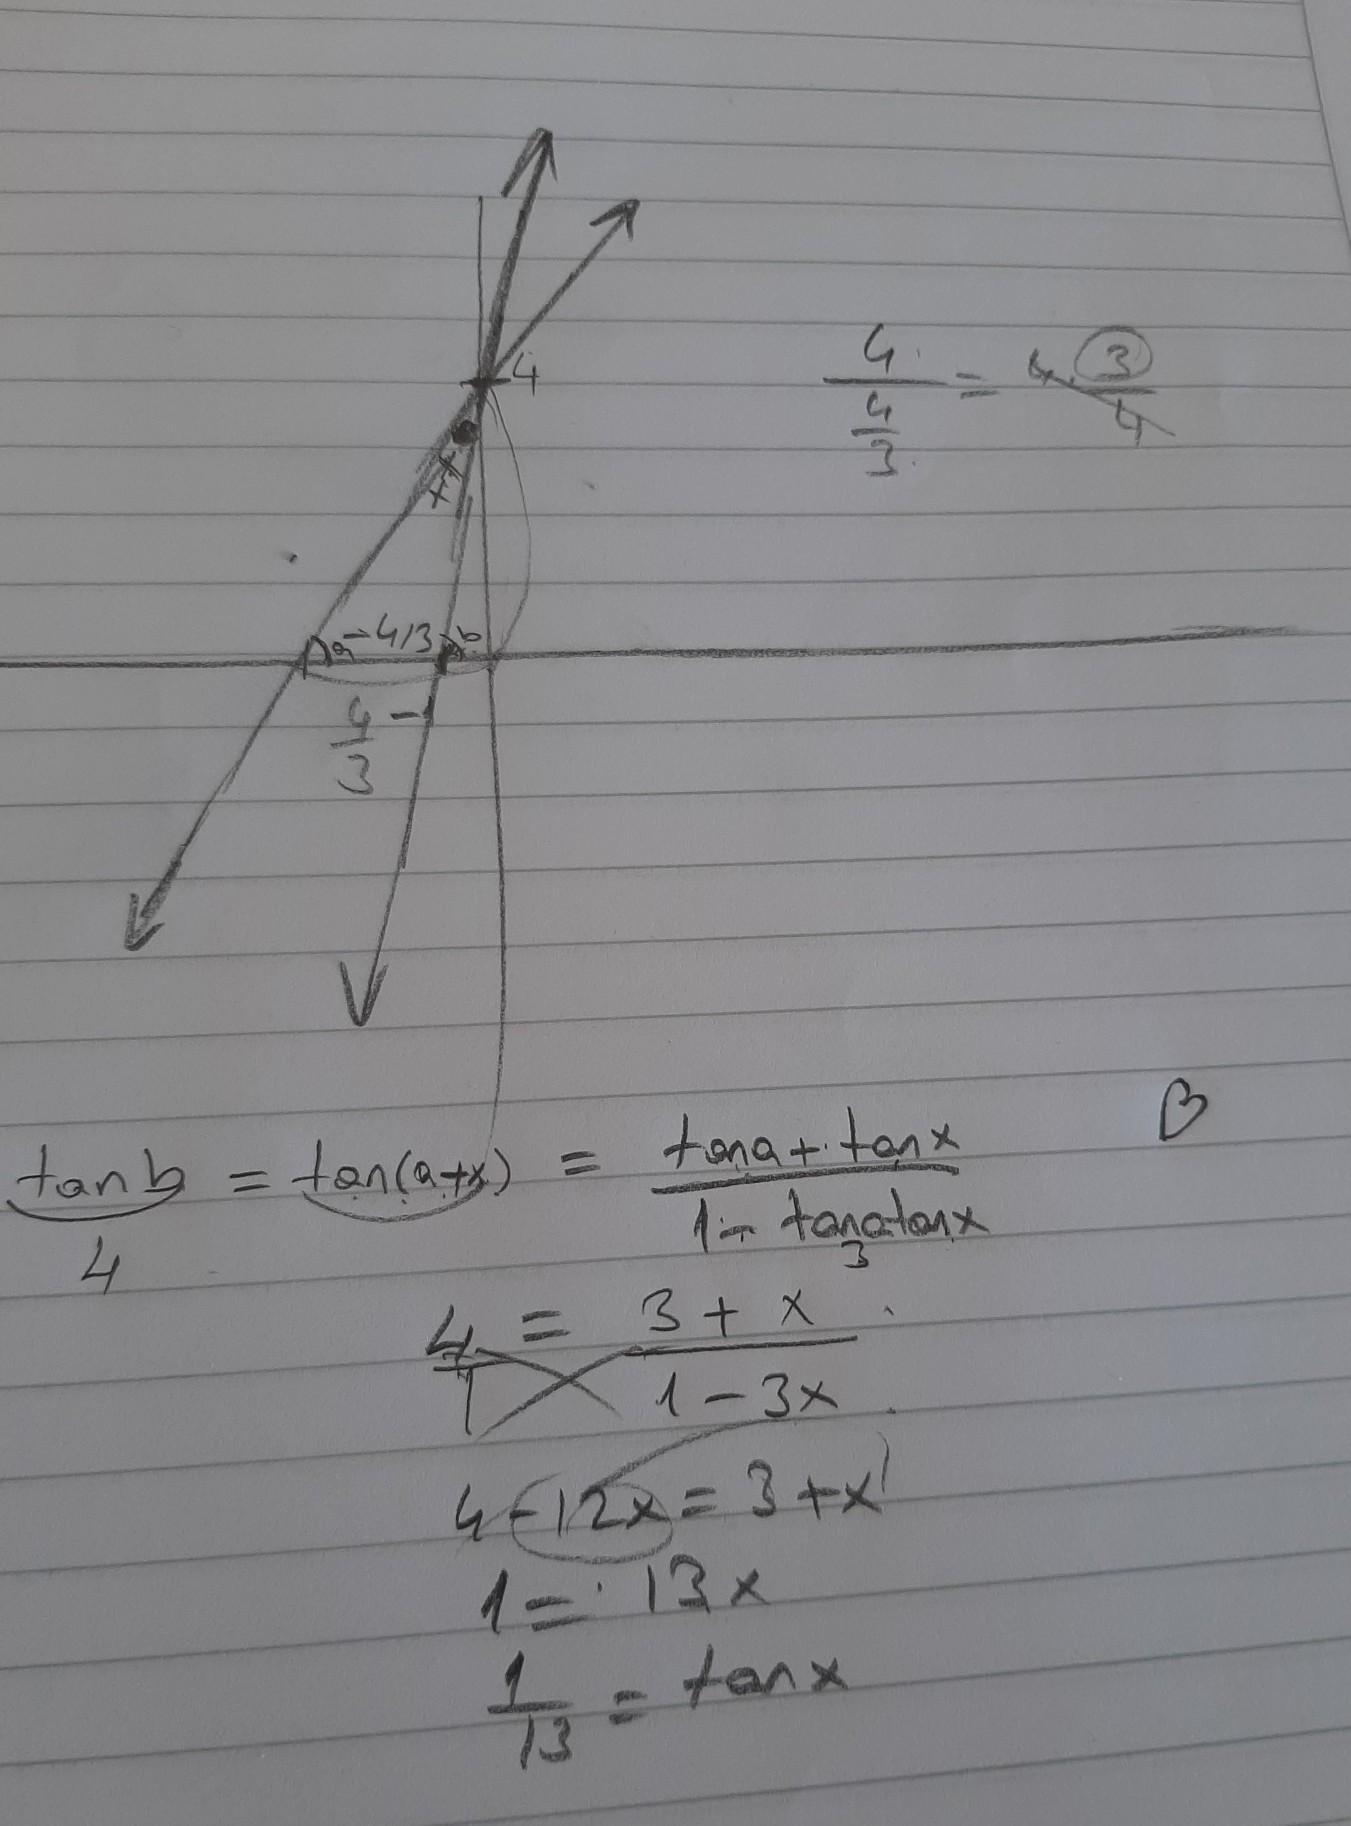 4
4/(4/3) = 4.3/4
x
a -4/3 b
4/3 -1
B
tan b = tan(a+x) = (tan a + tan x)/(1 - tan a tan x)
4 3
4/1 = (3 + x)/(1 - 3x)
4 - 12x = 3 + x
1 = 13x
1/13 = tan x